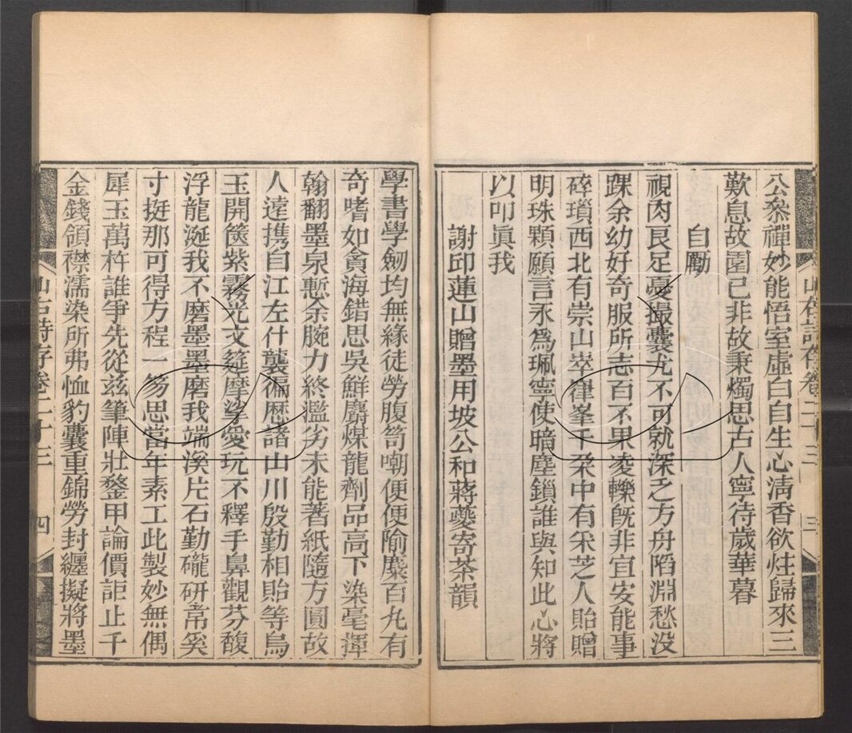 公參禪妙能悟室虛白自生心淸香欲炷歸來三
歎息故園已非故秉燭思古人寧待歲華暮
自勵
視肉良足憂撮囊尤不可就深乏方舟陷淵愁没
踝余幼好奇服所志百不果凌轢旣非宜安能事
碎瑣西北有崇山崒嵂峯千朶中有采芝人貽贈
明珠顆願言永爲珮寧使曠塵鎖誰與知此心將
以叩眞我
謝邱蓮山贈墨用坡公和蔣夔寄茶韻
學書學劒均無緣徒勞腹笥嘲便便隃麋百九有
奇嗜如貪海錯思吳鮮麝煤龍劑品高下染毫揮
翰翻墨泉慙余腕力終濫劣未能著紙隨方圓故
人遠携自江左什襲徧歷諸山川殷勤相貽等烏
玉開篋紫霧光文筵摩挲愛玩不釋手鼻觀芬馥
浮龍涎我不磨墨墨磨我端溪片石勤礲硏帋奚
寸挺那可得方程一笏思當年素工此製妙無偶
犀玉萬杵誰爭先從兹筆陣壯鍪甲論價詎止千
金錢領襟濡染所弗恤豹囊重錦勞封纏擬將墨
四
三